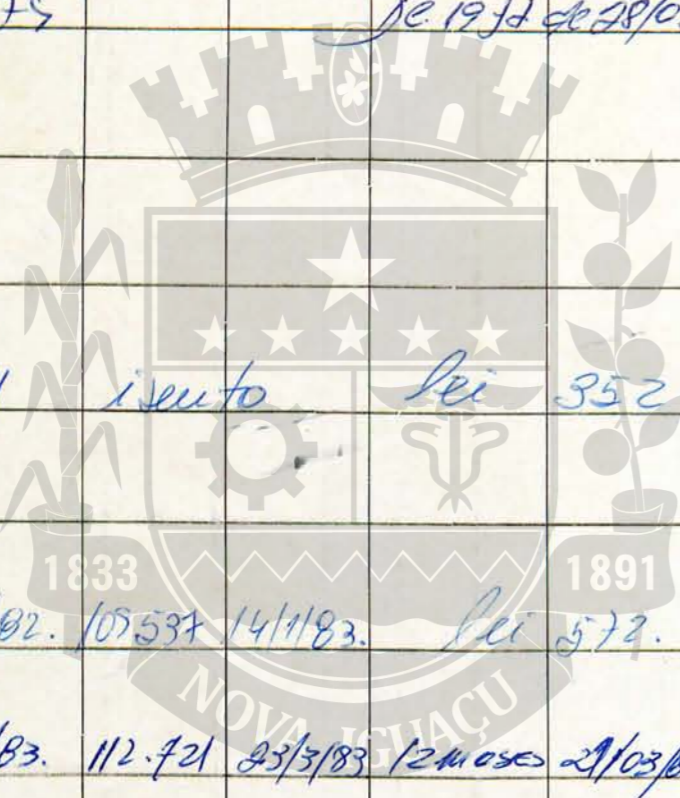 de 1977 de 28/0
isento lei 352
1833 1891
82. 109537 14/1/83. lei 572.
NOVA IGUAÇU
/83. 112.721 23/3/83 12 meses 21/03/